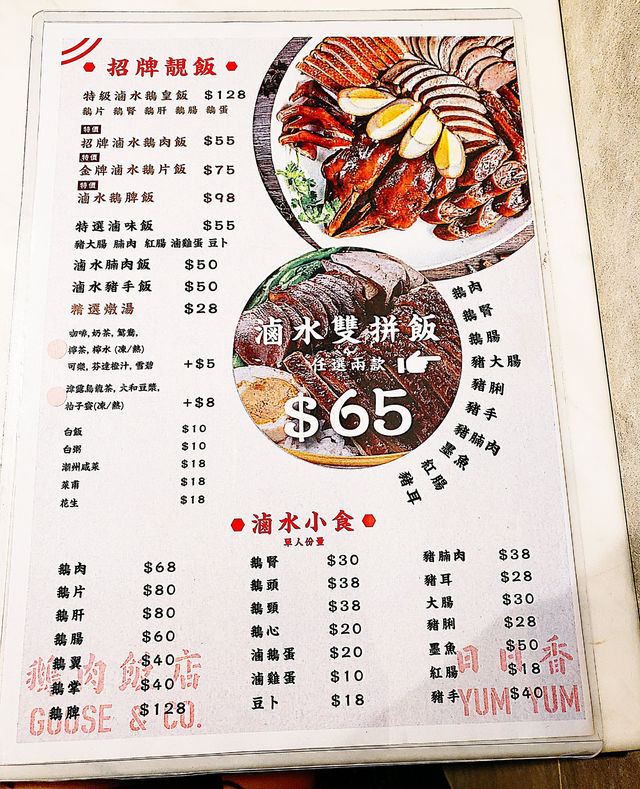 招牌靚飯
特級滷水鵝皇飯 $128
鵝片 鵝腎 鵝肝 鵝腸 鵝蛋
特價
招牌滷水鵝肉飯 $55
特價
金牌滷水鵝片飯 $75
特價
滷水鵝脾飯 $98
特選滷味飯 $55
豬大腸 腩肉 紅腸 滷雞蛋 豆卜
滷水腩肉飯 $50
滷水豬手飯 $50
精選燉湯 $28
咖啡, 奶茶, 鴛鴦,
檸茶, 檸水 (凍/熱)
可樂, 芬達橙汁, 雪碧 +$5
津露烏龍茶, 大和豆漿,
柚子蜜(凍/熱) +$8
白飯 $10
白粥 $10
潮州咸菜 $18
菜甫 $18
花生 $18
滷水雙拼飯
任選兩款
$65
鵝肉
鵝腎
鵝腸
豬大腸
豬脷
豬手
豬腩肉
墨魚
紅腸
豬耳
滷水小食
單人份量
鵝肉 $68
鵝片 $80
鵝肝 $80
鵝腸 $60
鵝翼 $40
鵝掌 $40
鵝脾 $128
鵝腎 $30
鵝頭 $38
鵝頸 $38
鵝心 $20
滷鵝蛋 $20
滷雞蛋 $10
豆卜 $18
豬腩肉 $38
豬耳 $28
大腸 $30
豬脷 $28
墨魚 $50
紅腸 $18
豬手 $40
鵝肉飯店
GOOSE & CO.
日日香
YUM YUM